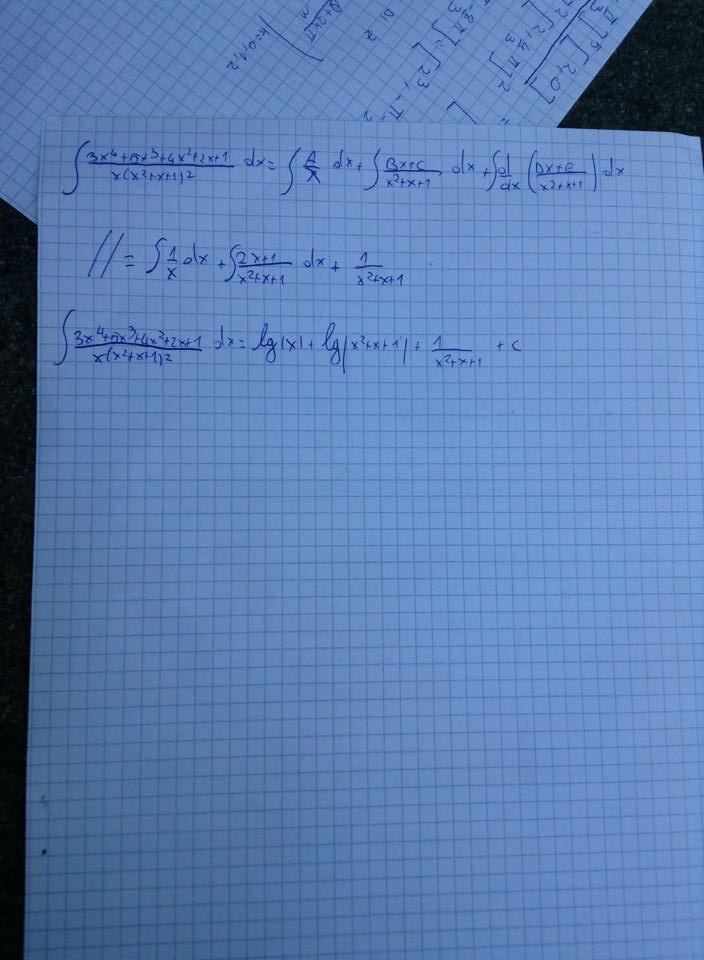 ∫ (3x⁴+5x³+4x²+2x+1)/(x(x²+x+1)²) dx = ∫ A/x dx + ∫ (Bx+C)/(x²+x+1) dx + ∫ d/dx ((Dx+E)/(x²+x+1)) dx
// = ∫ 1/x dx + ∫ (2x+1)/(x²+x+1) dx + 1/(x²+x+1)
∫ (3x⁴+5x³+4x²+2x+1)/(x(x²+x+1)²) dx = lg|x| + lg|x²+x+1| + 1/(x²+x+1) + c
k=0,1,2